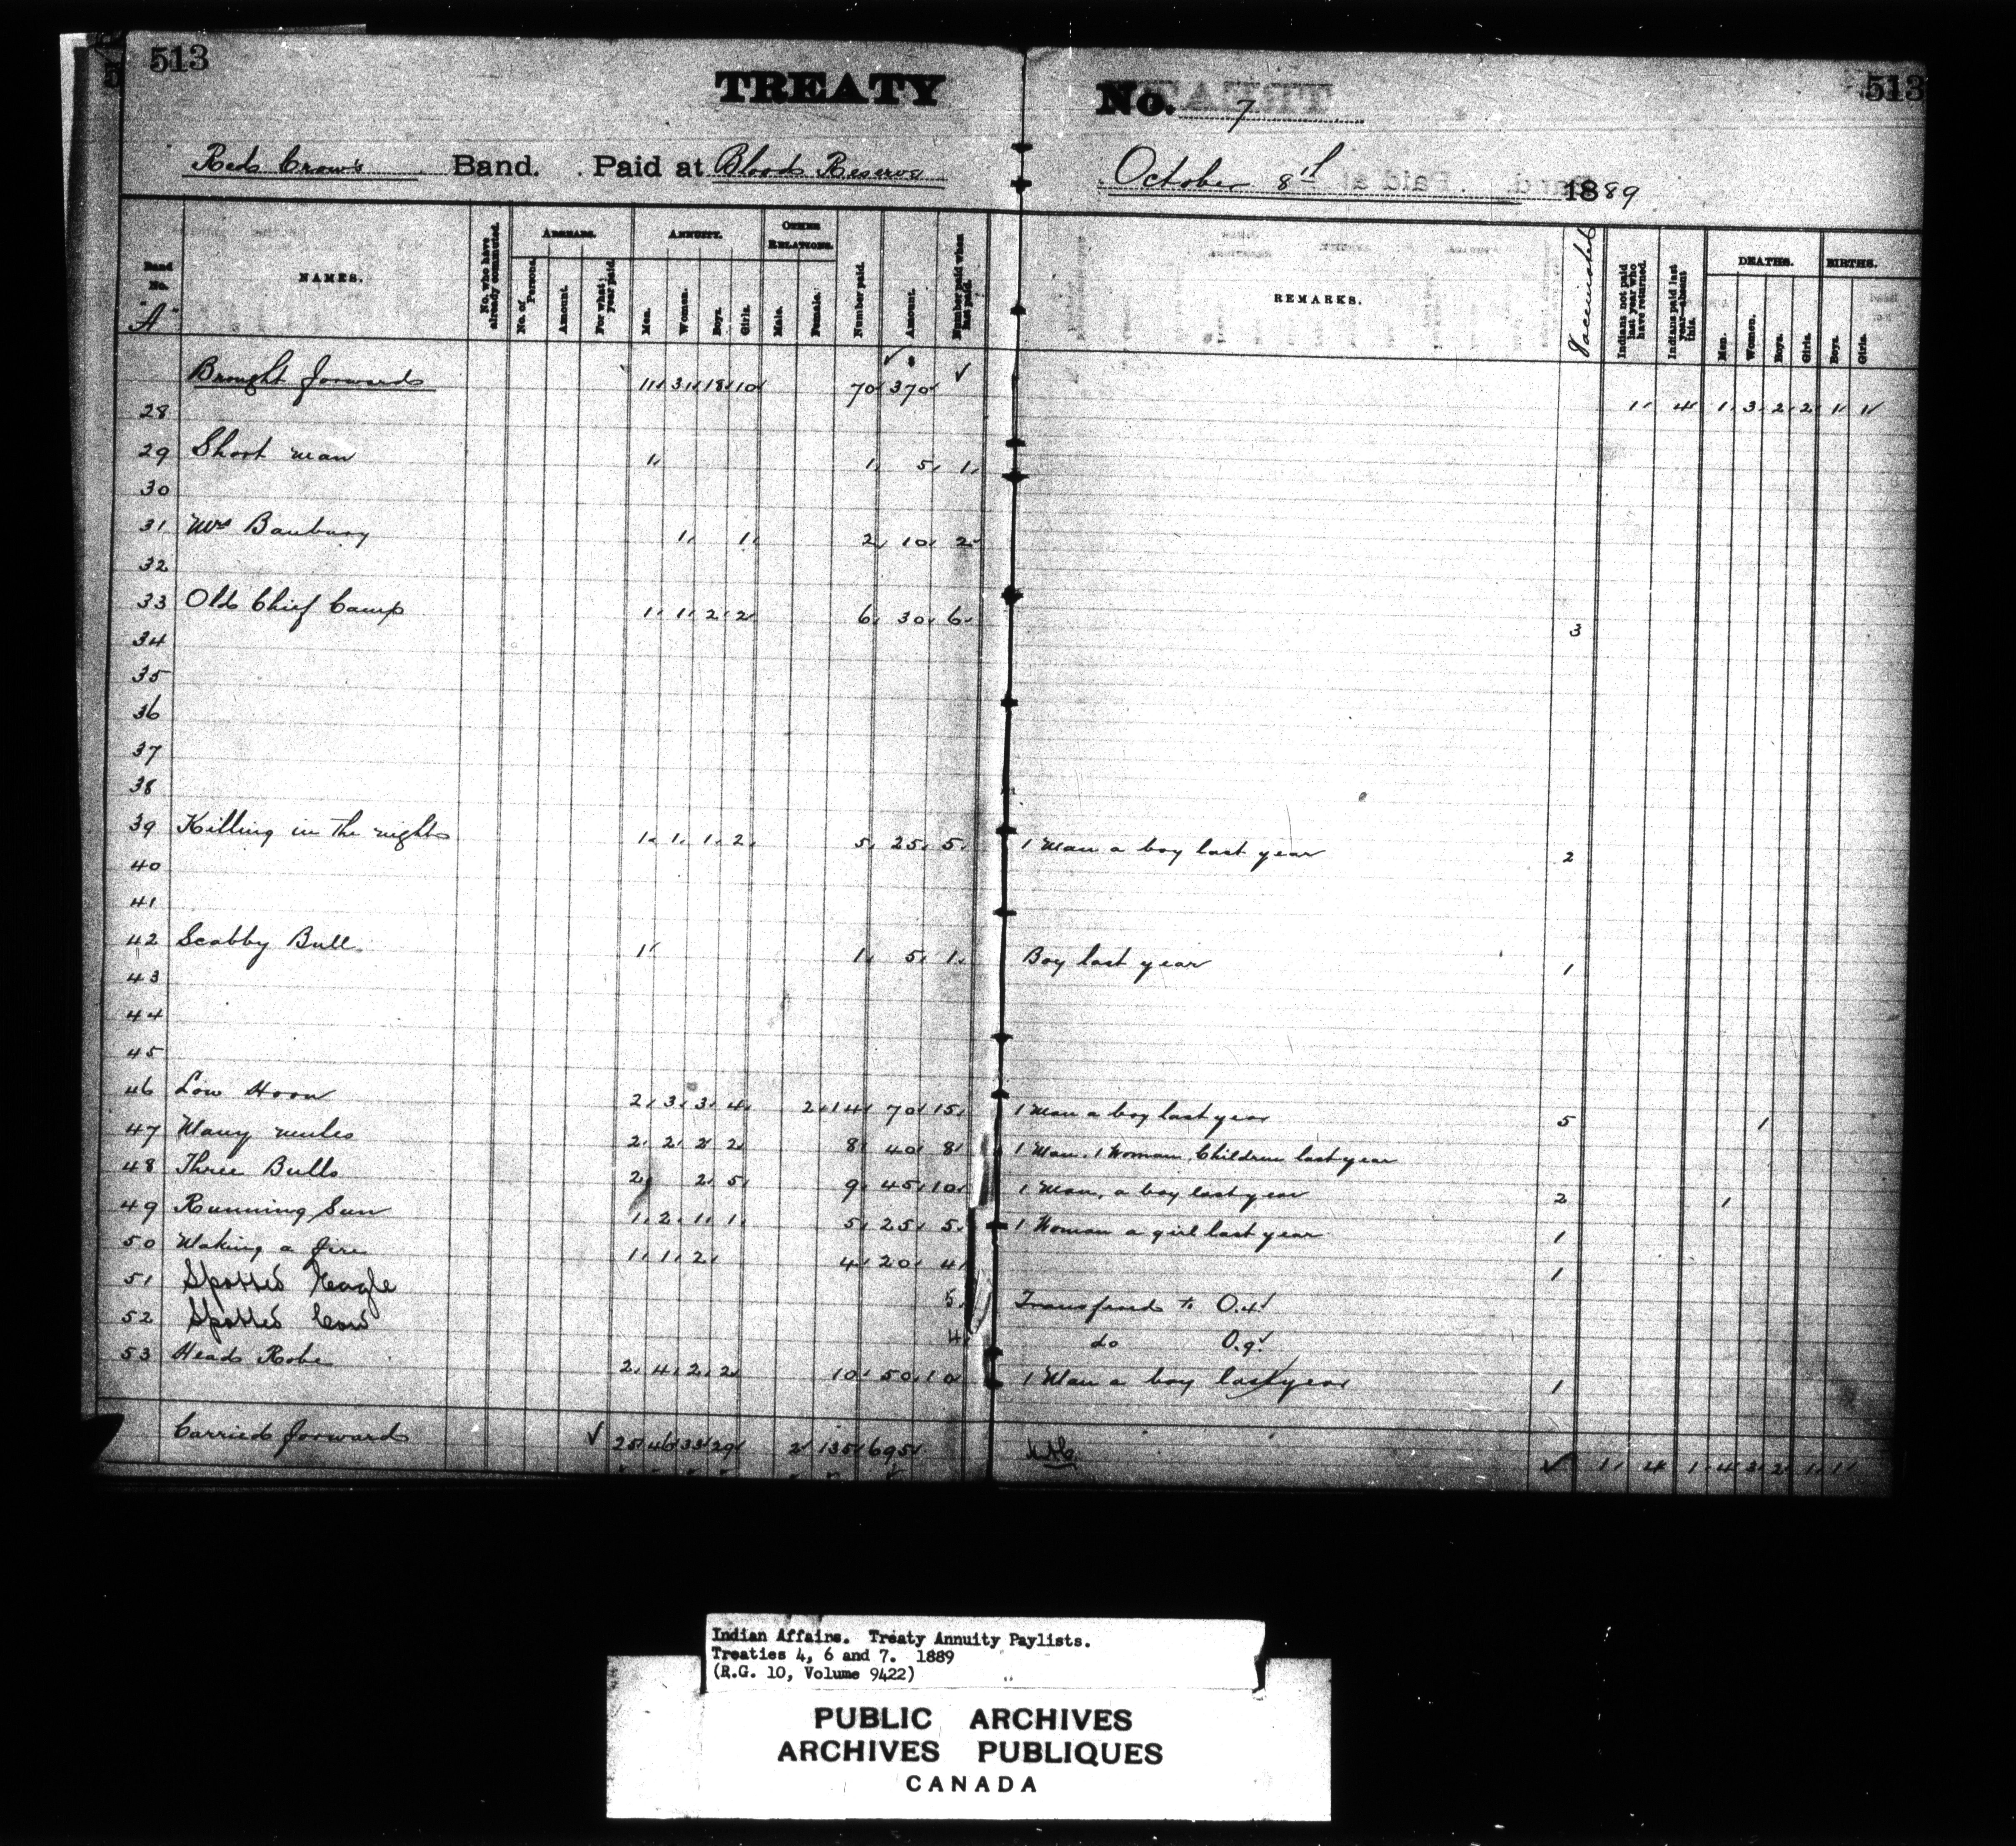 513
513
TREATY No. 7
Red Crow's Band. Paid at Blood Reserve October 8th 1889
Band No. "A"
NAMES.
No. who have already commuted.
ARREARS.
No. of Persons.
Amount.
For what year paid.
ANNUITY.
Men.
Women.
Boys.
Girls.
OTHER RELATIONS.
Male.
Female.
Number paid.
Amount.
Number paid when last paid.
REMARKS.
Vaccinated
Indians not paid last year who have returned.
Indians paid last year—absent this.
DEATHS.
Men.
Women.
Boys.
Girls.
BIRTHS.
Boys.
Girls.
Brought forward 11 31 18 10 70 370 1 4 1 3 2 2 1 1
28
29 Short man 1 1 5 1
30
31 Mrs Banbury 1 1 2 10 2
32
33 Old Chief Camp 1 1 2 2 6 30 6 3
34
35
36
37
38
39 Killing in the night 1 1 1 2 5 25 5 1 Man a boy last year 2
40
41
42 Scabby Bull 1 1 5 1 Boy last year 1
43
44
45
46 Low Horn 2 3 3 4 2 14 70 15 1 Man a boy last year 5 1
47 Many mules 2 2 2 2 8 40 8 1 Man, 1 Woman, Children last year
48 Three Bulls 2 2 5 9 45 10 1 Man, a boy last year 2 1
49 Running Sun 1 2 1 1 5 25 5 1 Woman a girl last year 1
50 Making a fire 1 1 2 4 20 4 1
51 Spotted Eagle 5 Transferred to
52 Spotted Cow 4 do
53 Head Robe 2 4 2 2 10 50 10 1 Man a boy last year 1
Carried forward 25 46 33 29 2 135 695 1 4 1 4 3 2 1 1
Indian Affairs. Treaty Annuity Paylists.
Treaties 4, 6 and 7. 1889
(R.G. 10, Volume 9422)
PUBLIC ARCHIVES
ARCHIVES PUBLIQUES
CANADA